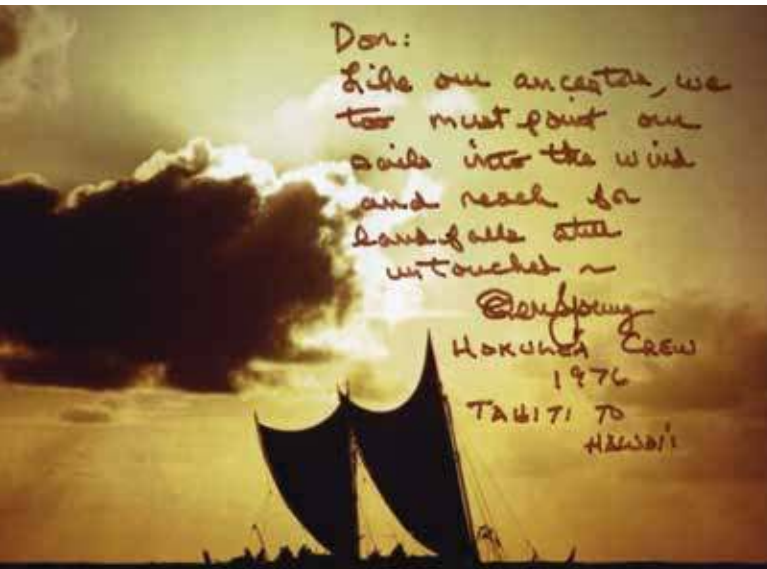 Don:
Like our ancestors, we
too must point our
sails into the wind
and reach for
landfalls still
untouched ~
Ben Young
HOKULE'A CREW
1976
TAHITI TO
HAWAI'I